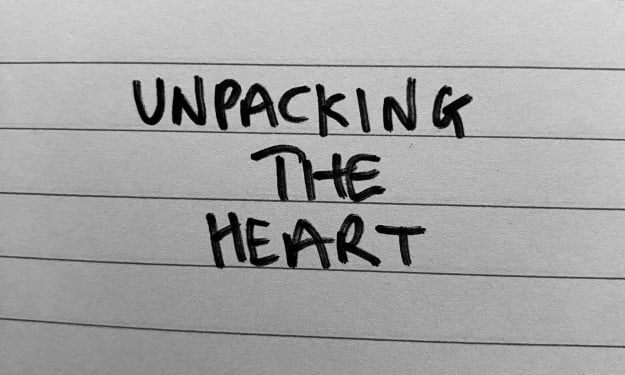 UNPACKING
THE
HEART